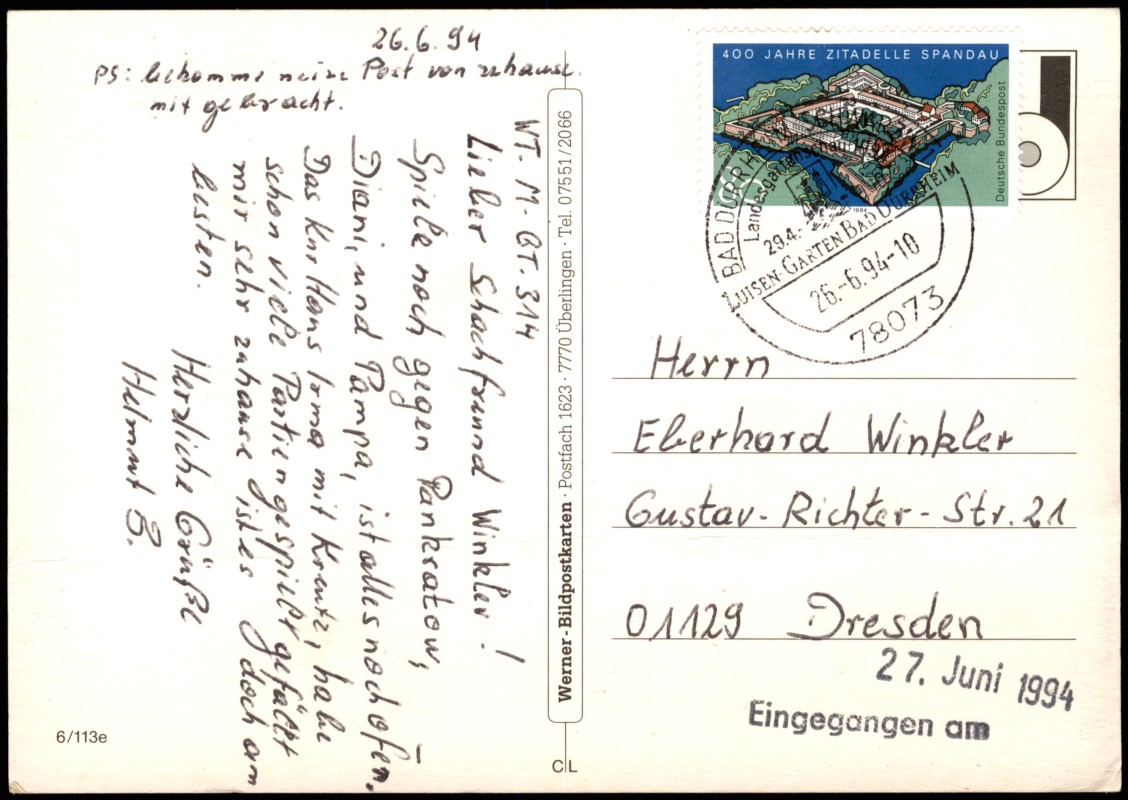 26.6.94
PS: bekomme meine Post von zuhause
mit gebracht.
WT. M-GT.314
Lieber Schachfreund Winkler!
Spiele noch gegen Pankratow,
Diani, und Pampa, ist alles noch ofen.
Das Kurhaus Irma mit Kreutz, habe
schon viele Partien gespielt gefällt
mir sehr zuhause ist es doch am
besten.
Herzliche Grüße
Helmut B.
6/113e
Werner-Bildpostkarten · Postfach 1623 · 7770 Überlingen · Tel. 07551/2066
C L
400 JAHRE ZITADELLE SPANDAU
Deutsche Bundespost
1994
BAD DÜRRHEIM
Landesgartenschau
29.4.-
LUISEN-GARTEN BAD DÜRRHEIM
26.-6.94-10
78073
Herrn
Eberhard Winkler
Gustav-Richter-Str. 21
01129 Dresden
27. Juni 1994
Eingegangen am